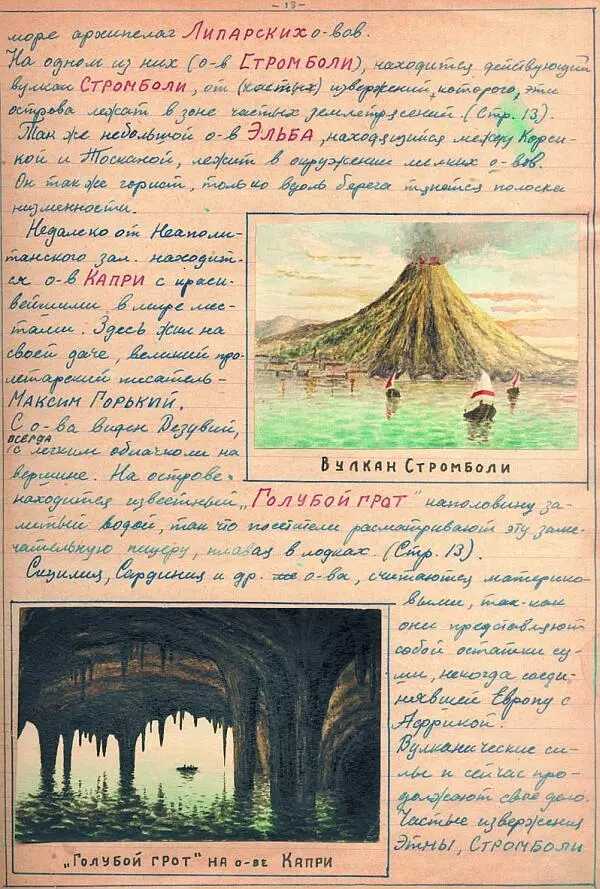 - 13 -
море архипелаг ЛИПАРСКИХ о-вов.
На одном из них (о-в СТРОМБОЛИ), находится действующий
вулкан СТРОМБОЛИ, от (частых) извержений, которого, эти
острова лежат в зоне частых землетрясений. (Стр. 13).
Так же небольшой о-в ЭЛЬБА, находящийся между Корси-
кой и Тосканой, лежит в окружении мелких о-вов.
Он так же горист, только вдоль берега тянется полоска
низменности.
Недалеко от Неаполи-
танского зал. находит-
ся о-в КАПРИ с краси-
вейшими в мире мес-
тами. Здесь жил на
своей даче, великий про-
летарский писатель-
МАКСИМ ГОРЬКИЙ.
С о-ва виден Везувий,
ВСЕГДА
с легким облачком на
вершине. На острове
находится известный „ГОЛУБОЙ ГРОТ" наполовину за-
литый водой, так что посетители расматривают эту заме-
чательную пещеру, плавая в лодках. (Стр. 13).
Сицилия, Сардиния и др. о-ва, считаются материко-
выми, так-как
они представляют
собой остатки су-
ши, некогда соеди-
нявшей Европу с
Африкой.
Вулканические си-
лы и сейчас про-
должают свое дело.
Частые извержения
ЭТНЫ, СТРОМБОЛИ
ВУЛКАН СТРОМБОЛИ
„ГОЛУБОЙ ГРОТ" НА О-ВЕ КАПРИ